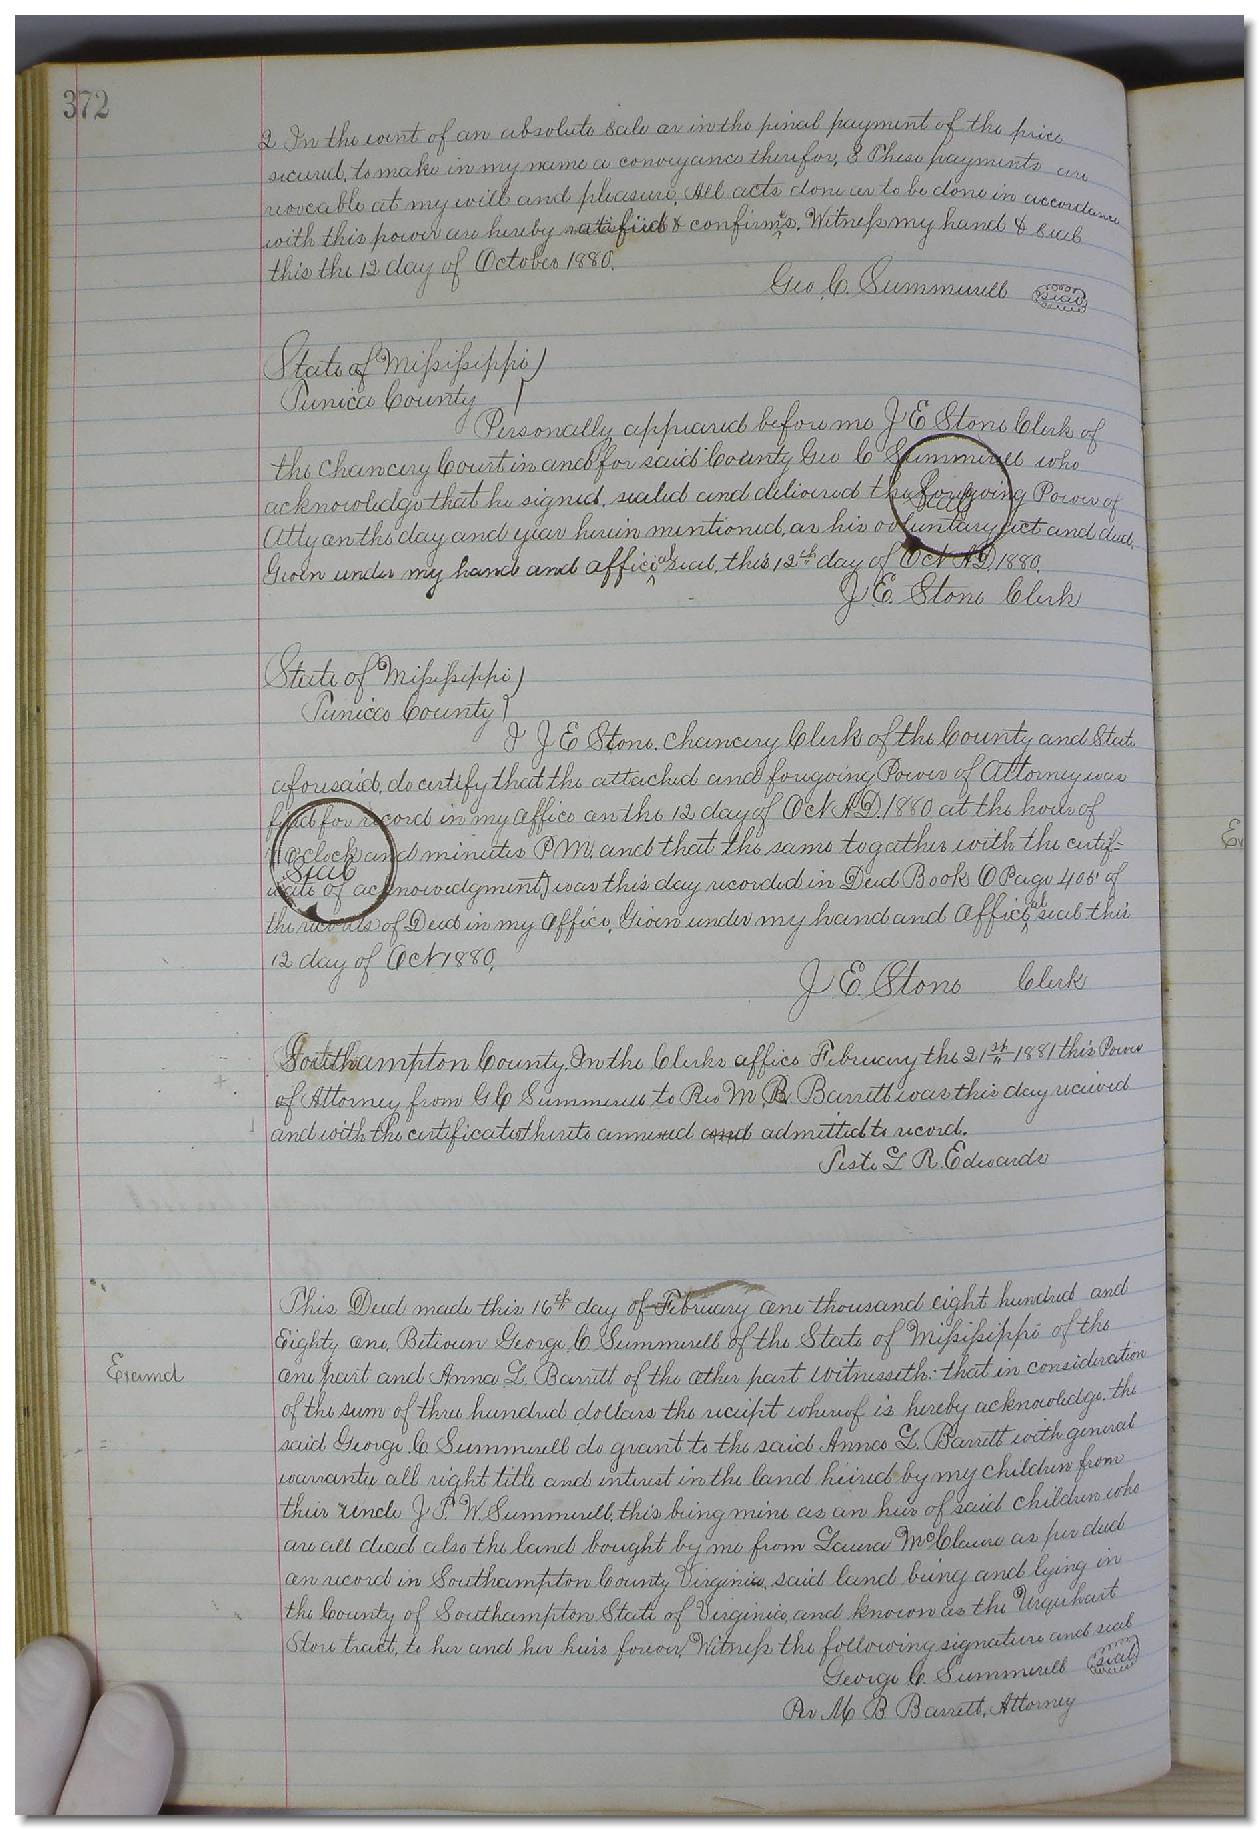 372
2 In the event of an absolute sale or in the final payment of the price
secured, to make in my name a conveyance therefor, 3 These payments are
revocable at my will and pleasure, All acts done or to be done in accordance
with this power are hereby ratified & confirmes, Witness my hand & seal
this the 12 day of October 1880.
Geo. C. Summerell seal
State of Mississippi )
Tunica County
Personally appeared before me J E Stone Clerk of
the Chancery Court in and for said County Geo C Summerell who
acknowledge that he signed, sealed and delivered the foregoing Power of
Seal
Atty on the day and year herein mentioned, as his voluntary act and deed.
Given under my hand and official seal, this 12th day of Oct A D, 1880.
J. E. Stone Clerk
State of Mississippi )
Tunica County
I J E Stone, Chancery Clerk of the County and State
aforesaid, do certify that the attached and foregoing Power of Attorney was
filed for record in my office on the 12 day of Oct A.D. 1880 at the hour of
oclock and minutes P M, and that the same together with the certif-
Seal
icate of acknowedgment) was this day recorded in Deed Book O Page 405 of
the records of Deed in my office, Given under my hand and official seal this
12 day of Oct 1880,
J E. Stone Clerk
Southampton County, In the Clerks office February the 21st 1881 this Power
of Attorney from G C Summerell to Rev M. B. Barrett was this day received
and with the certificate thereto annexed and admitted to record.
Teste L R. Edwards
This Deed made this 16th day of February one thousand eight hundred and
Eighty one, Between George C Summerell of the State of Mississippi of the
Examd
one part and Anna L. Barrett of the other part Witnesseth: that in consideration
of the sum of three hundred dollars the receipt whereof is hereby acknowledge. the
said George C Summerell do grant to the said Anna L. Barrett with general
warrantee all right title and interest in the land heired by my children from
their uncle J P. W. Summerell, this being mine as an heir of said children who
are all dead also the land bought by me from Laura McClaure as per deed
on record in Southampton County Virginia, said land being and lying in
the County of Southampton State of Virginia, and known as the Urquhart
Store tract, to her and her heirs forever, Witness the following signature and seal
George C. Summerell seal
Per M B Barrett, Attorney